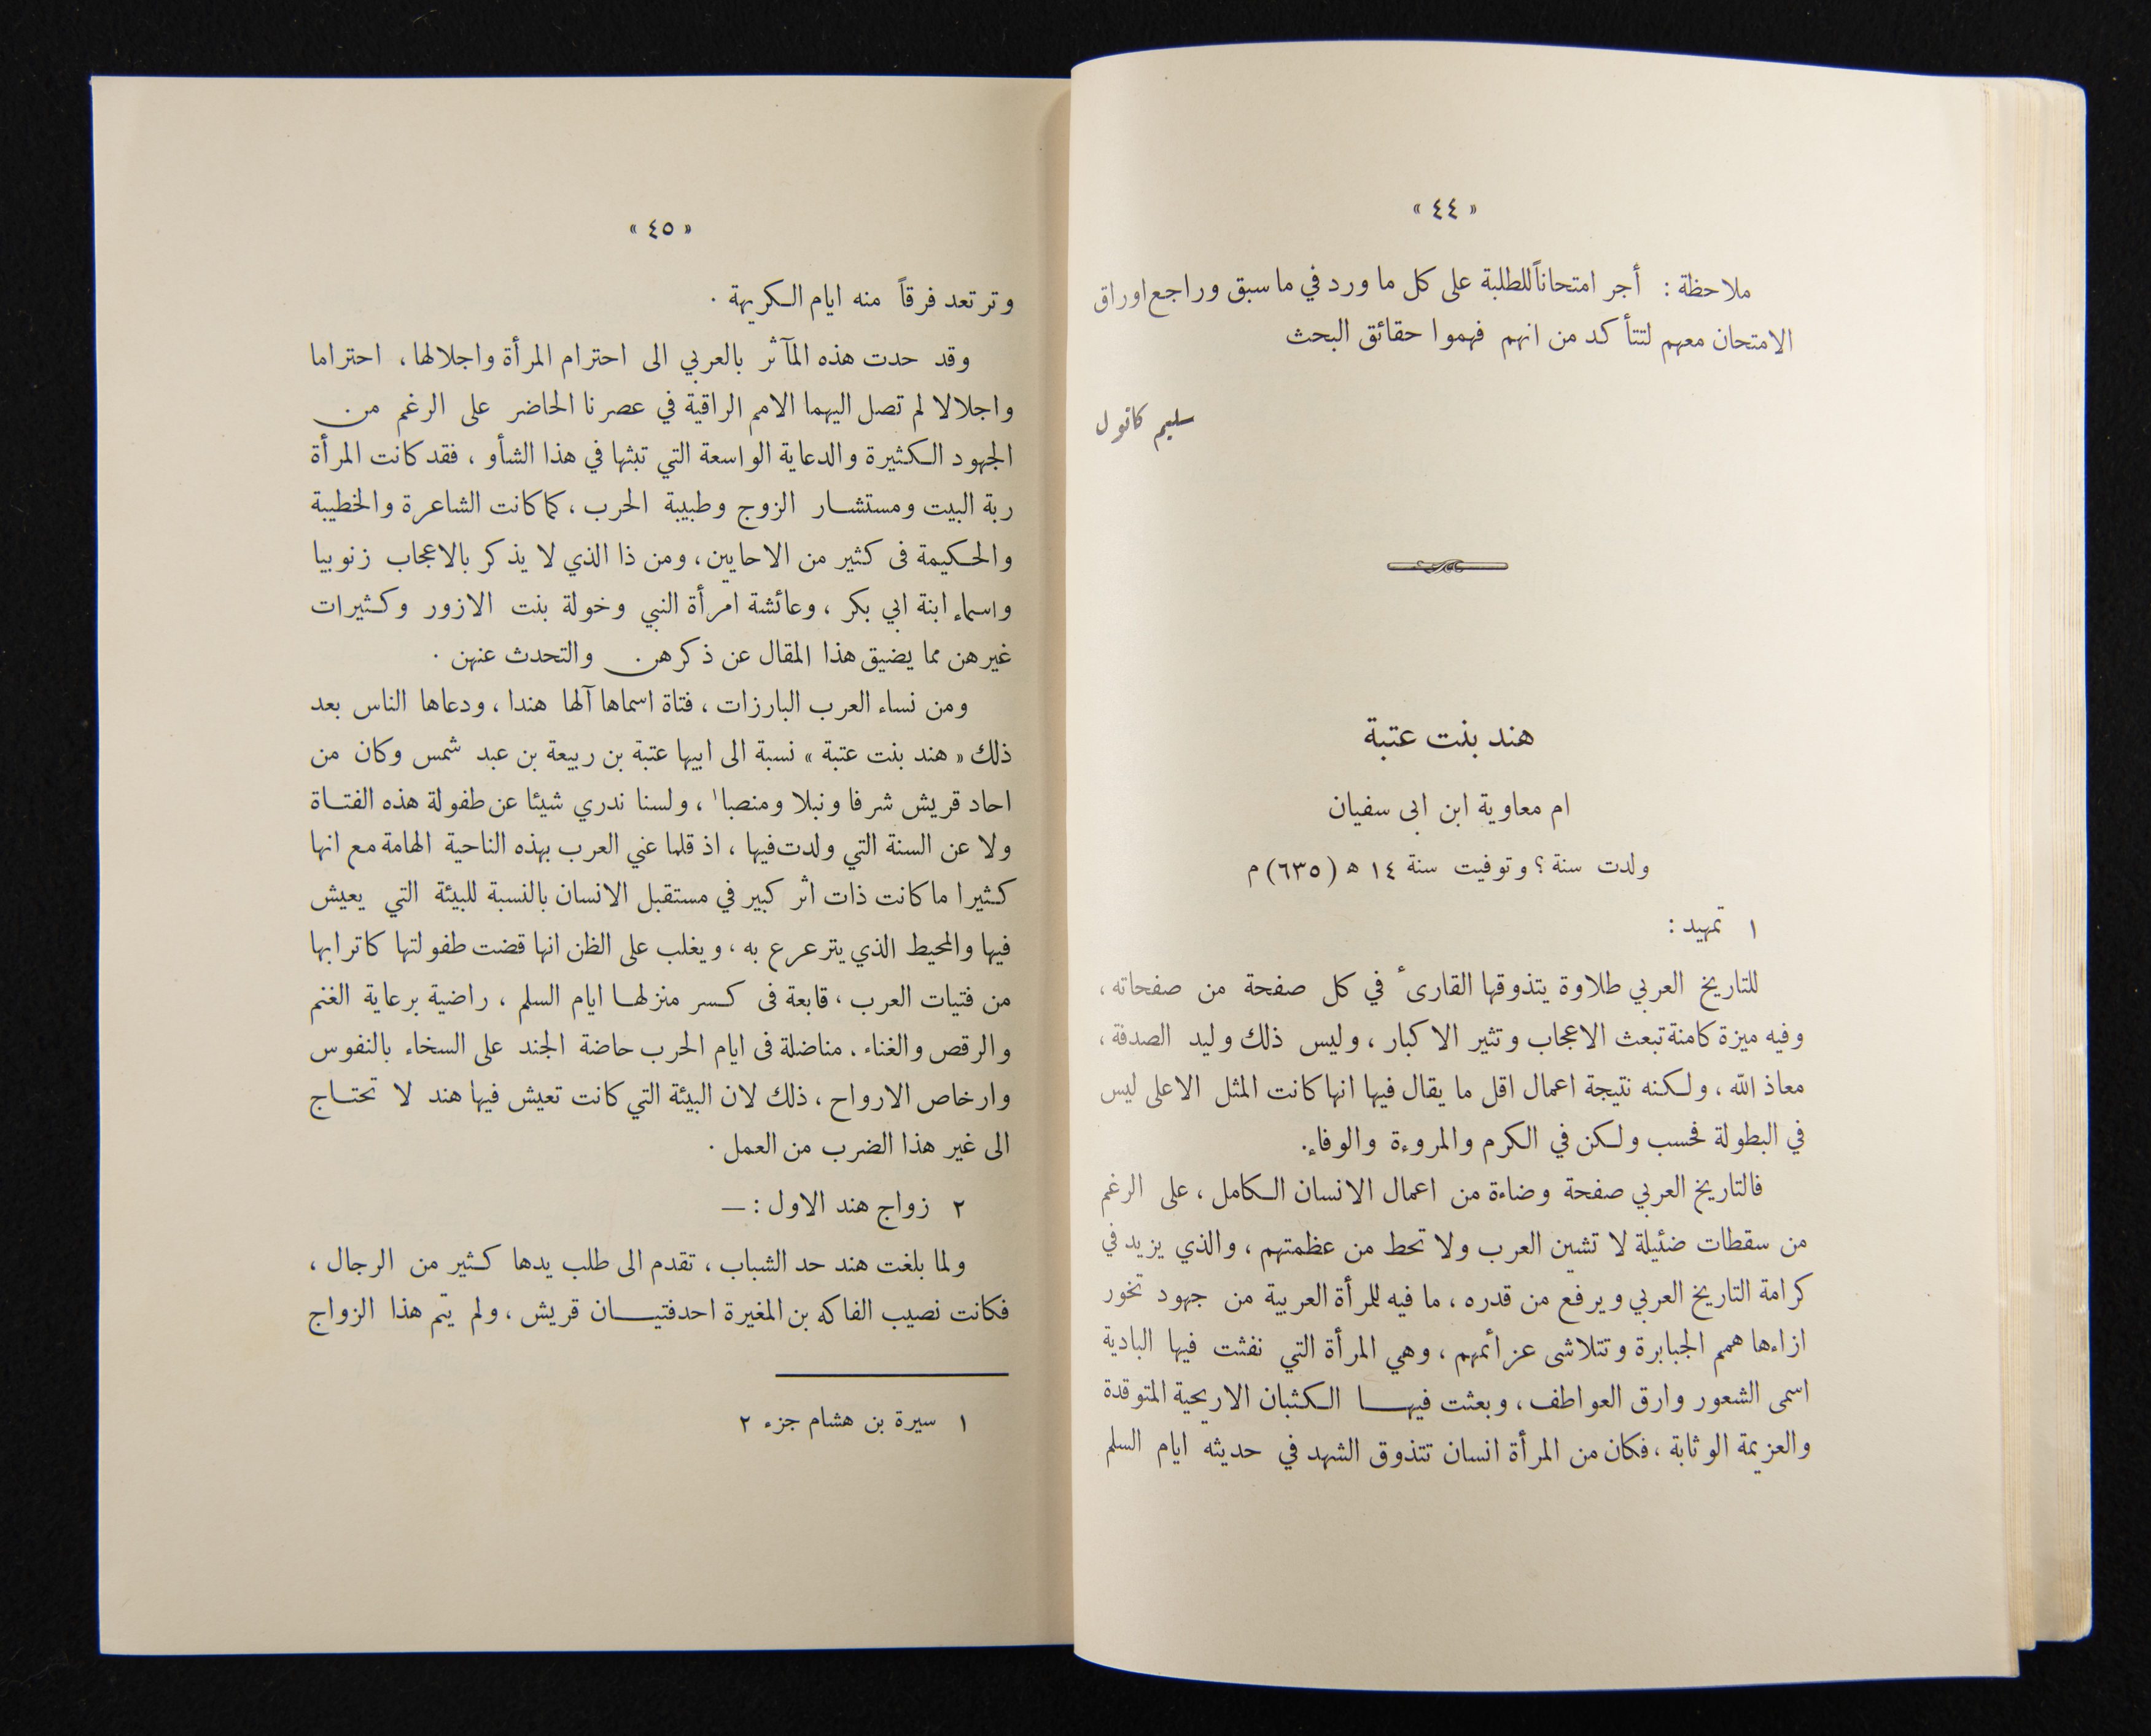 « ٤٤ »
ملاحظة : أجر امتحاناً للطلبة على كل ما ورد في ما سبق وراجع اوراق
الامتحان معهم لتتأكد من انهم فهموا حقائق البحث
سليم كاتول
هند بنت عتبة
ام معاوية ابن ابى سفيان
ولدت سنة ؟ وتوفيت سنة ١٤ ه (٦٣٥) م
١ تمهيد :
للتاريخ العربي طلاوة يتذوقها القارىء في كل صفحة من صفحاته ،
وفيه ميزة كامنة تبعث الاعجاب وتثير الاكبار ، وليس ذلك وليد الصدفة ،
معاذ الله ، ولكنه نتيجة اعمال اقل ما يقال فيها انها كانت المثل الاعلى ليس
في البطولة فحسب ولكن في الكرم والمروءة والوفاء.
فالتاريخ العربي صفحة وضاءة من اعمال الانسان الكامل ، على الرغم
من سقطات ضئيلة لا تشين العرب ولا تحط من عظمتهم ، والذي يزيد في
كرامة التاريخ العربي ويرفع من قدره ، ما فيه للمرأة العربية من جهود تخور
ازاءها همم الجبابرة وتتلاشى عزائمهم ، وهي المرأة التي نفثت فيها البادية
اسمى الشعور وارق العواطف ، وبعثت فيهـــا الكثبان الاريحية المتوقدة
والعزيمة الوثابة ، فكان من المرأة انسان تتذوق الشهد في حديثه ايام السلم
« ٤٥ »
وترتعد فرقاً منه ايام الكريهة .
وقد حدت هذه المآثر بالعربي الى احترام المرأة واجلالها ، احتراما
واجلالا لم تصل اليهما الامم الراقية في عصرنا الحاضر على الرغم من
الجهود الكثيرة والدعاية الواسعة التي تبثها في هذا الشأو ، فقد كانت المرأة
ربة البيت ومستشــار الزوج وطبيبة الحرب ، كما كانت الشاعرة والخطيبة
والحكيمة فى كثير من الاحايين ، ومن ذا الذي لا يذكر بالاعجاب زنوبيا
واسماء ابنة ابي بكر ، وعائشة امرأة النبي وخولة بنت الازور وكثيرات
غيرهن مما يضيق هذا المقال عن ذكرهن والتحدث عنهن .
ومن نساء العرب البارزات ، فتاة اسماها آلها هندا ، ودعاها الناس بعد
ذلك « هند بنت عتبة » نسبة الى ابيها عتبة بن ربيعة بن عبد شمس وكان من
احاد قريش شرفا ونبلا ومنصبا١ ، ولسنا ندري شيئا عن طفولة هذه الفتــاة
ولا عن السنة التي ولدت فيها ، اذ قلما عني العرب بهذه الناحية الهامة مع انها
كثيرا ما كانت ذات اثر كبير في مستقبل الانسان بالنسبة للبيئة التي يعيش
فيها والمحيط الذي يترعرع به ، ويغلب على الظن انها قضت طفولتها كاترابها
من فتيات العرب ، قابعة فى كسر منزلهــا ايام السلم ، راضية برعاية الغنم
والرقص والغناء . مناضلة فى ايام الحرب حاضة الجند على السخاء بالنفوس
وارخاص الارواح ، ذلك لان البيئة التي كانت تعيش فيها هند لا تحتــاج
الى غير هذا الضرب من العمل .
٢ زواج هند الاول : —
ولما بلغت هند حد الشباب ، تقدم الى طلب يدها كثير من الرجال ،
فكانت نصيب الفاكه بن المغيرة احدفتيـــان قريش ، ولم يتم هذا الزواج
١ سيرة بن هشام جزء ٢